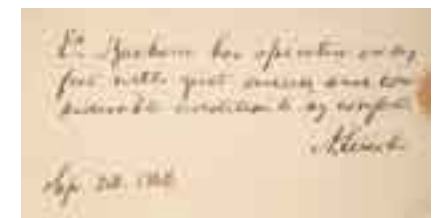 Dr. Zacharie has operated on my
feet with great success, and con
siderable addition to my comfort
A. Lincoln
Sep. 22. 1862